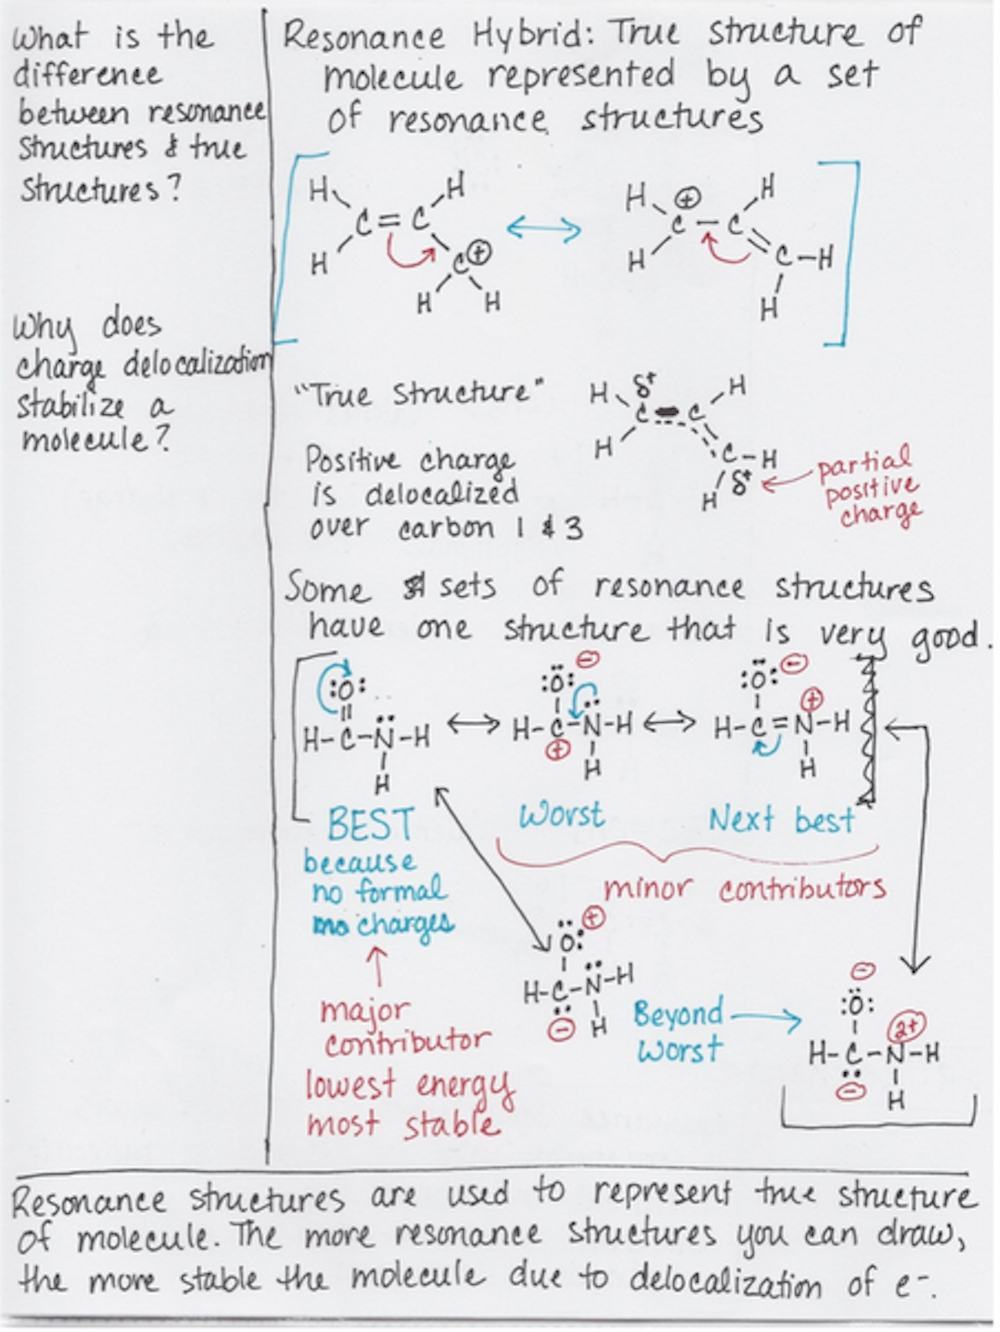 What is the
difference
between resonance
structures & true
structures?
Why does
charge delocalization
stabilize a
molecule?
Resonance Hybrid: True structure of
molecule represented by a set
of resonance structures
H H H ⊕ H
C=C ↔ C-C
H C⊕ H C-H
H H H
"True Structure"
Positive charge
is delocalized
over carbon 1 & 3
H δ+ H
C C
H C-H
H δ+
partial
positive
charge
Some sets of resonance structures
have one structure that is very good.
:O: :Ö: ⊖ :Ö: ⊖ ⊕
H-C-N̈-H ↔ H-C-N̈-H ↔ H-C=N-H
H ⊕ H H
BEST
because
no formal
charges
Worst
Next best
minor contributors
major
contributor
lowest energy
most stable
:O: ⊕
H-C-N̈-H
⊖ H
Beyond
worst
⊖
:Ö: 2+
H-C-N-H
⊖ H
Resonance structures are used to represent true structure
of molecule. The more resonance structures you can draw,
the more stable the molecule due to delocalization of e-.